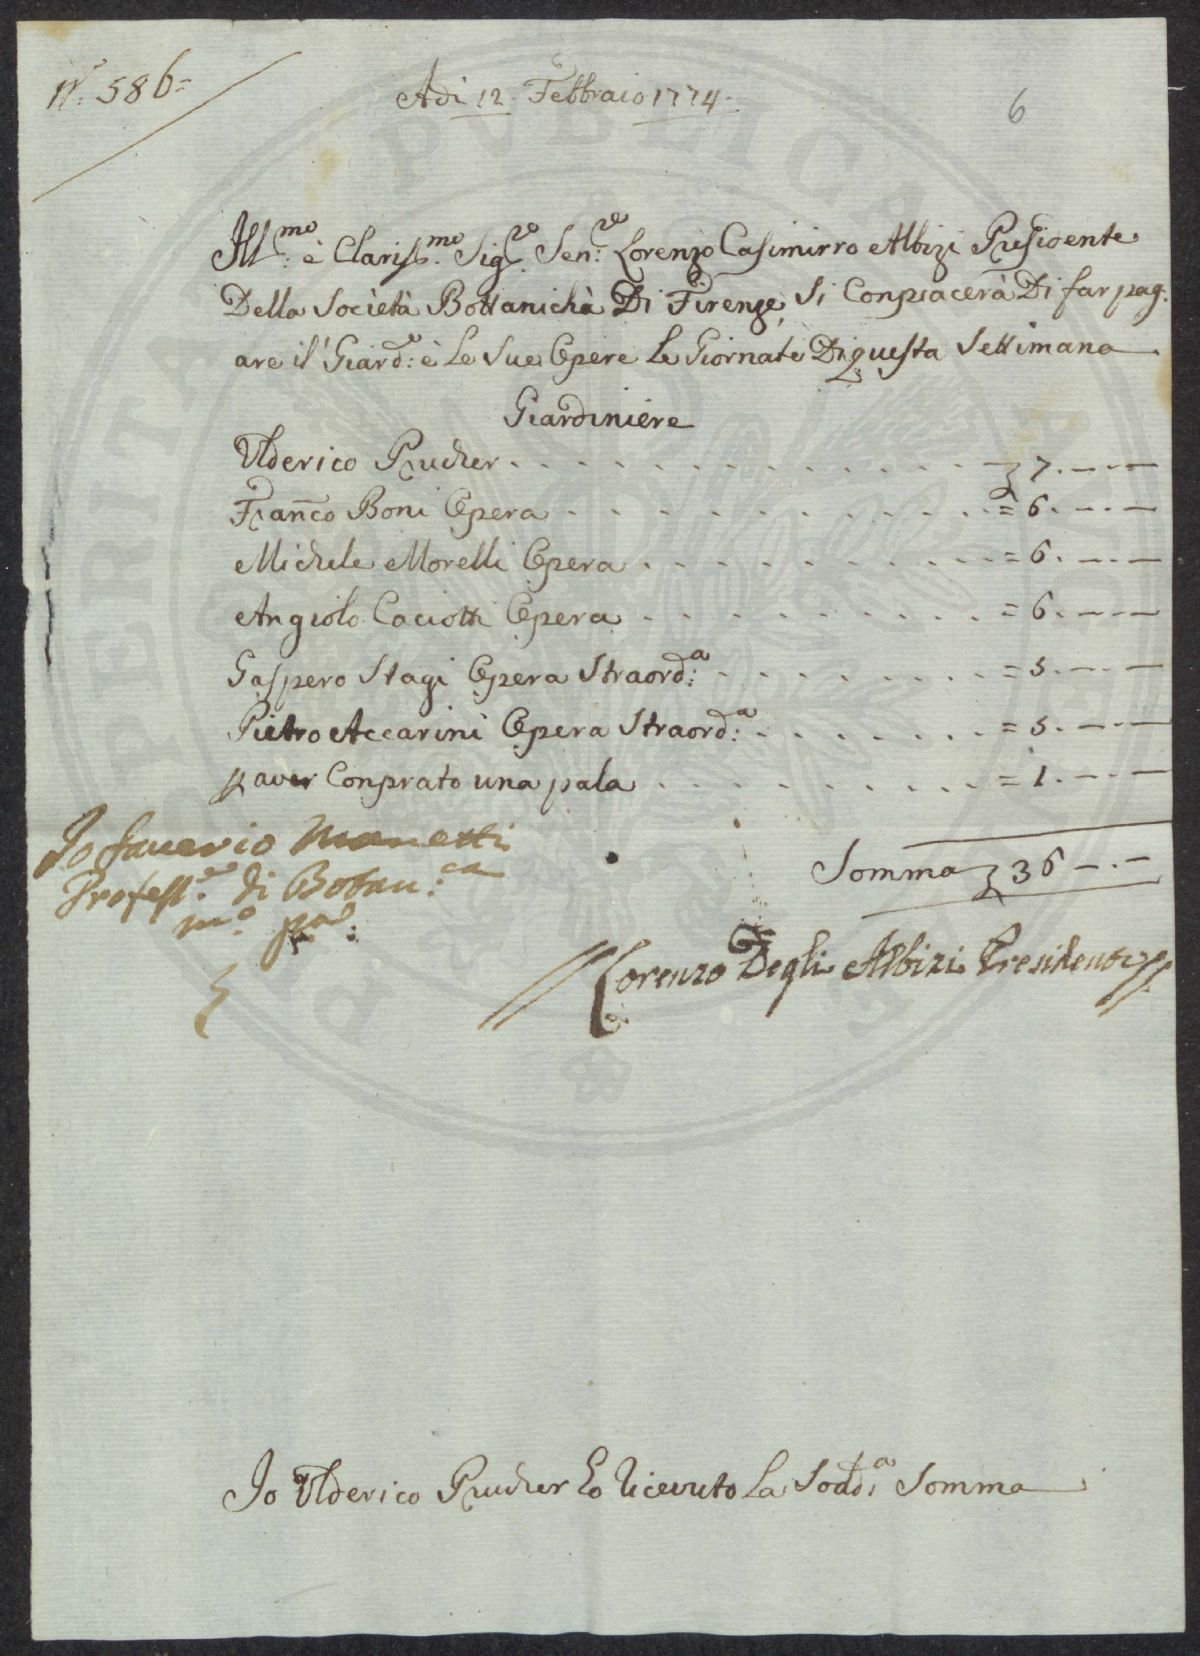 N.º 586=
Adi 12. Febbraio 1774.
6
Ill.mo è Clariss.mo Sig.re Sen.re Lorenzo Casimirro Albizi Presidente
Della Società Bottanichà Di Firenze, Si Conpiacerà Di far pag.
are il Giard.e è Le Sue Opere Le Giornate Di questa Settimana
Giardiniere
Vlderico Prucher . . . . . . . . . . . . . . . 7.—.—
Franco Boni Opera . . . . . . . . . . . . . = 6.—.—
Michele Morelli Opera . . . . . . . . . . . = 6.—.—
Angiolo Caciotti Opera . . . . . . . . . . = 6.—.—
Gaspero Stagi Opera Straord.a . . . . . . . . = 5.—.—
Pietro Accarini Opera Straord.a . . . . . . . = 5.—.—
p aver Conprato una pala . . . . . . . . . = 1.—.—
Somma 36 —.—
Jo Saverio Manetti
Profess.re di Botan.ca
m.o p.a
Lorenzo Degli Albizi Presidente
Jo Vlderico Prucher Ho Ricevuto La Sodd.a Somma
PERITAT PVBLICA